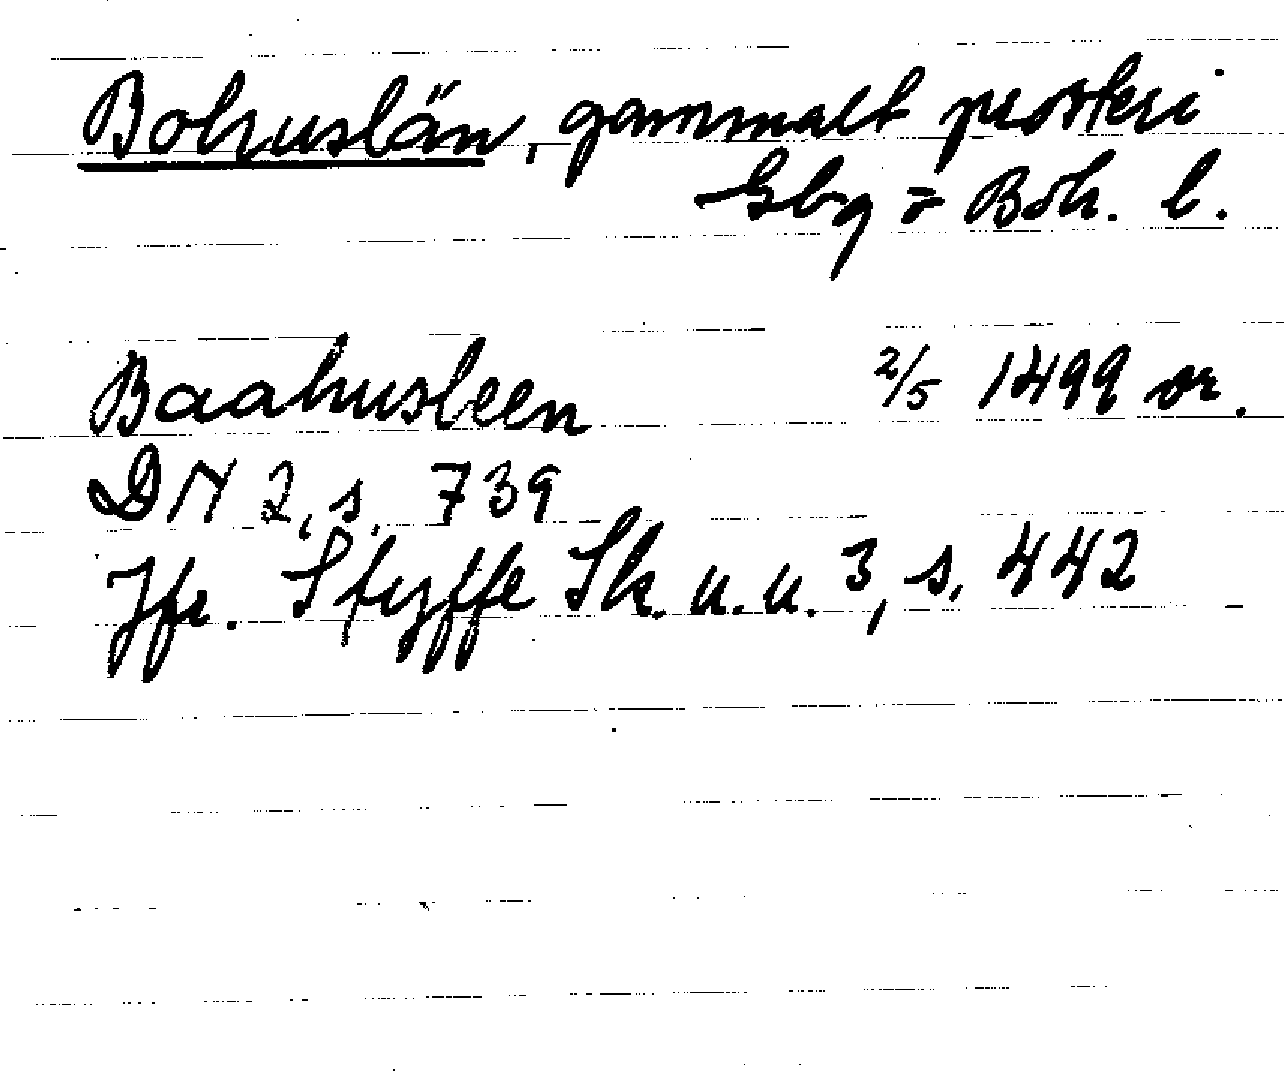 Bohuslän, gammalt prosteri
Gbg o Boh. l.
Baahusleen 2/5 1499 or.
DN 2, s. 739
Jfr. Styffe Sk. u. u. 3, s. 442